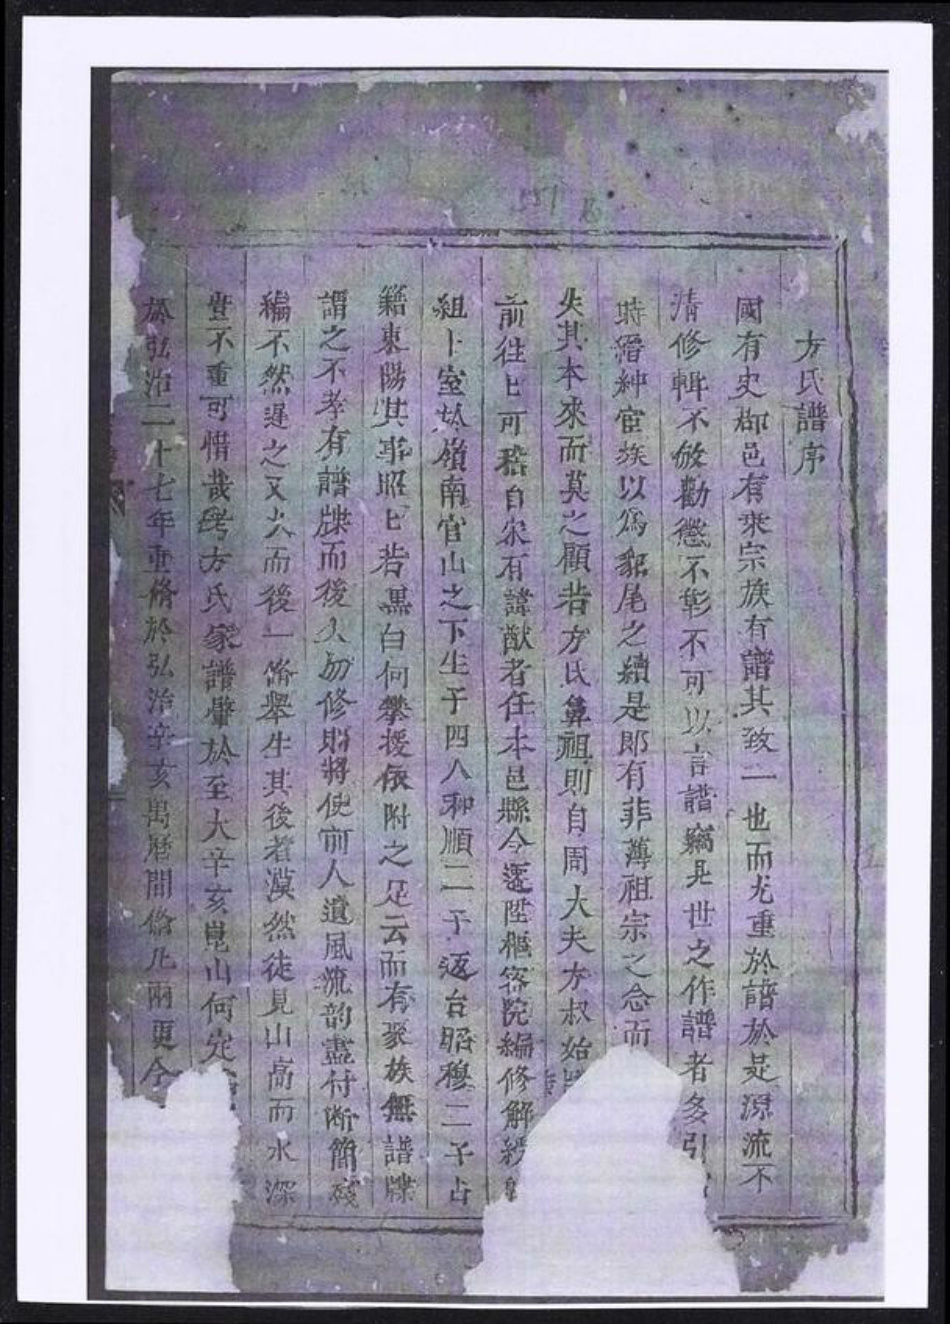 方氏譜序
國有史郡邑有乘宗族有譜其致一也而尤重於譜於是源流不
清修輯不倣勸懲不彰不可以言譜竊見世之作譜者多引
時縉紳宦族以爲貂尾之續是即有非薄祖宗之念而
失其本來而莫之顧昔方氏鼻祖則自周大夫方叔始
前徃匕可稽自宋有諱猷者任本邑縣令遷陞樞密院編修解綬
組卜室於嶺南官山之下生子四人和順二子返台昭穆二子占
籍東陽其事昭匕若黒白何攀援依附之足云而有聚族無譜牒
謂之不孝有譜牒而後人勿修則將使前人遺風流韵盡付断簡殘
編不然遲之又久而後一脩舉生其後者漠然徒見山高而水深
豈不重可惜哉考方氏家譜肇於至大辛亥崑山何定
於弘治二十七年重脩於弘治辛亥萬曆間脩凡兩更今